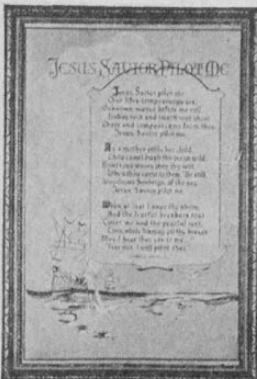 JESUS, SAVIOR PILOT ME
Jesus, Savior, pilot me
Over life's tempestuous sea,
Unknown waves before me roll,
Hiding rock and treacherous shoal
Chart and compass come from thee
Jesus, Savior, pilot me.
As a mother stills her child
Thou canst hush the ocean wild
Boisterous waves obey thy will
When thou sayest to them, "Be still,
Wondrous Sovereign of the sea
Jesus, Savior, pilot me
When at last I near the shore,
And the fearful breakers roar
me and the peaceful rest,
Then, while leaning on thy breast
May I hear thee say to me
Fear not, I will pilot thee."